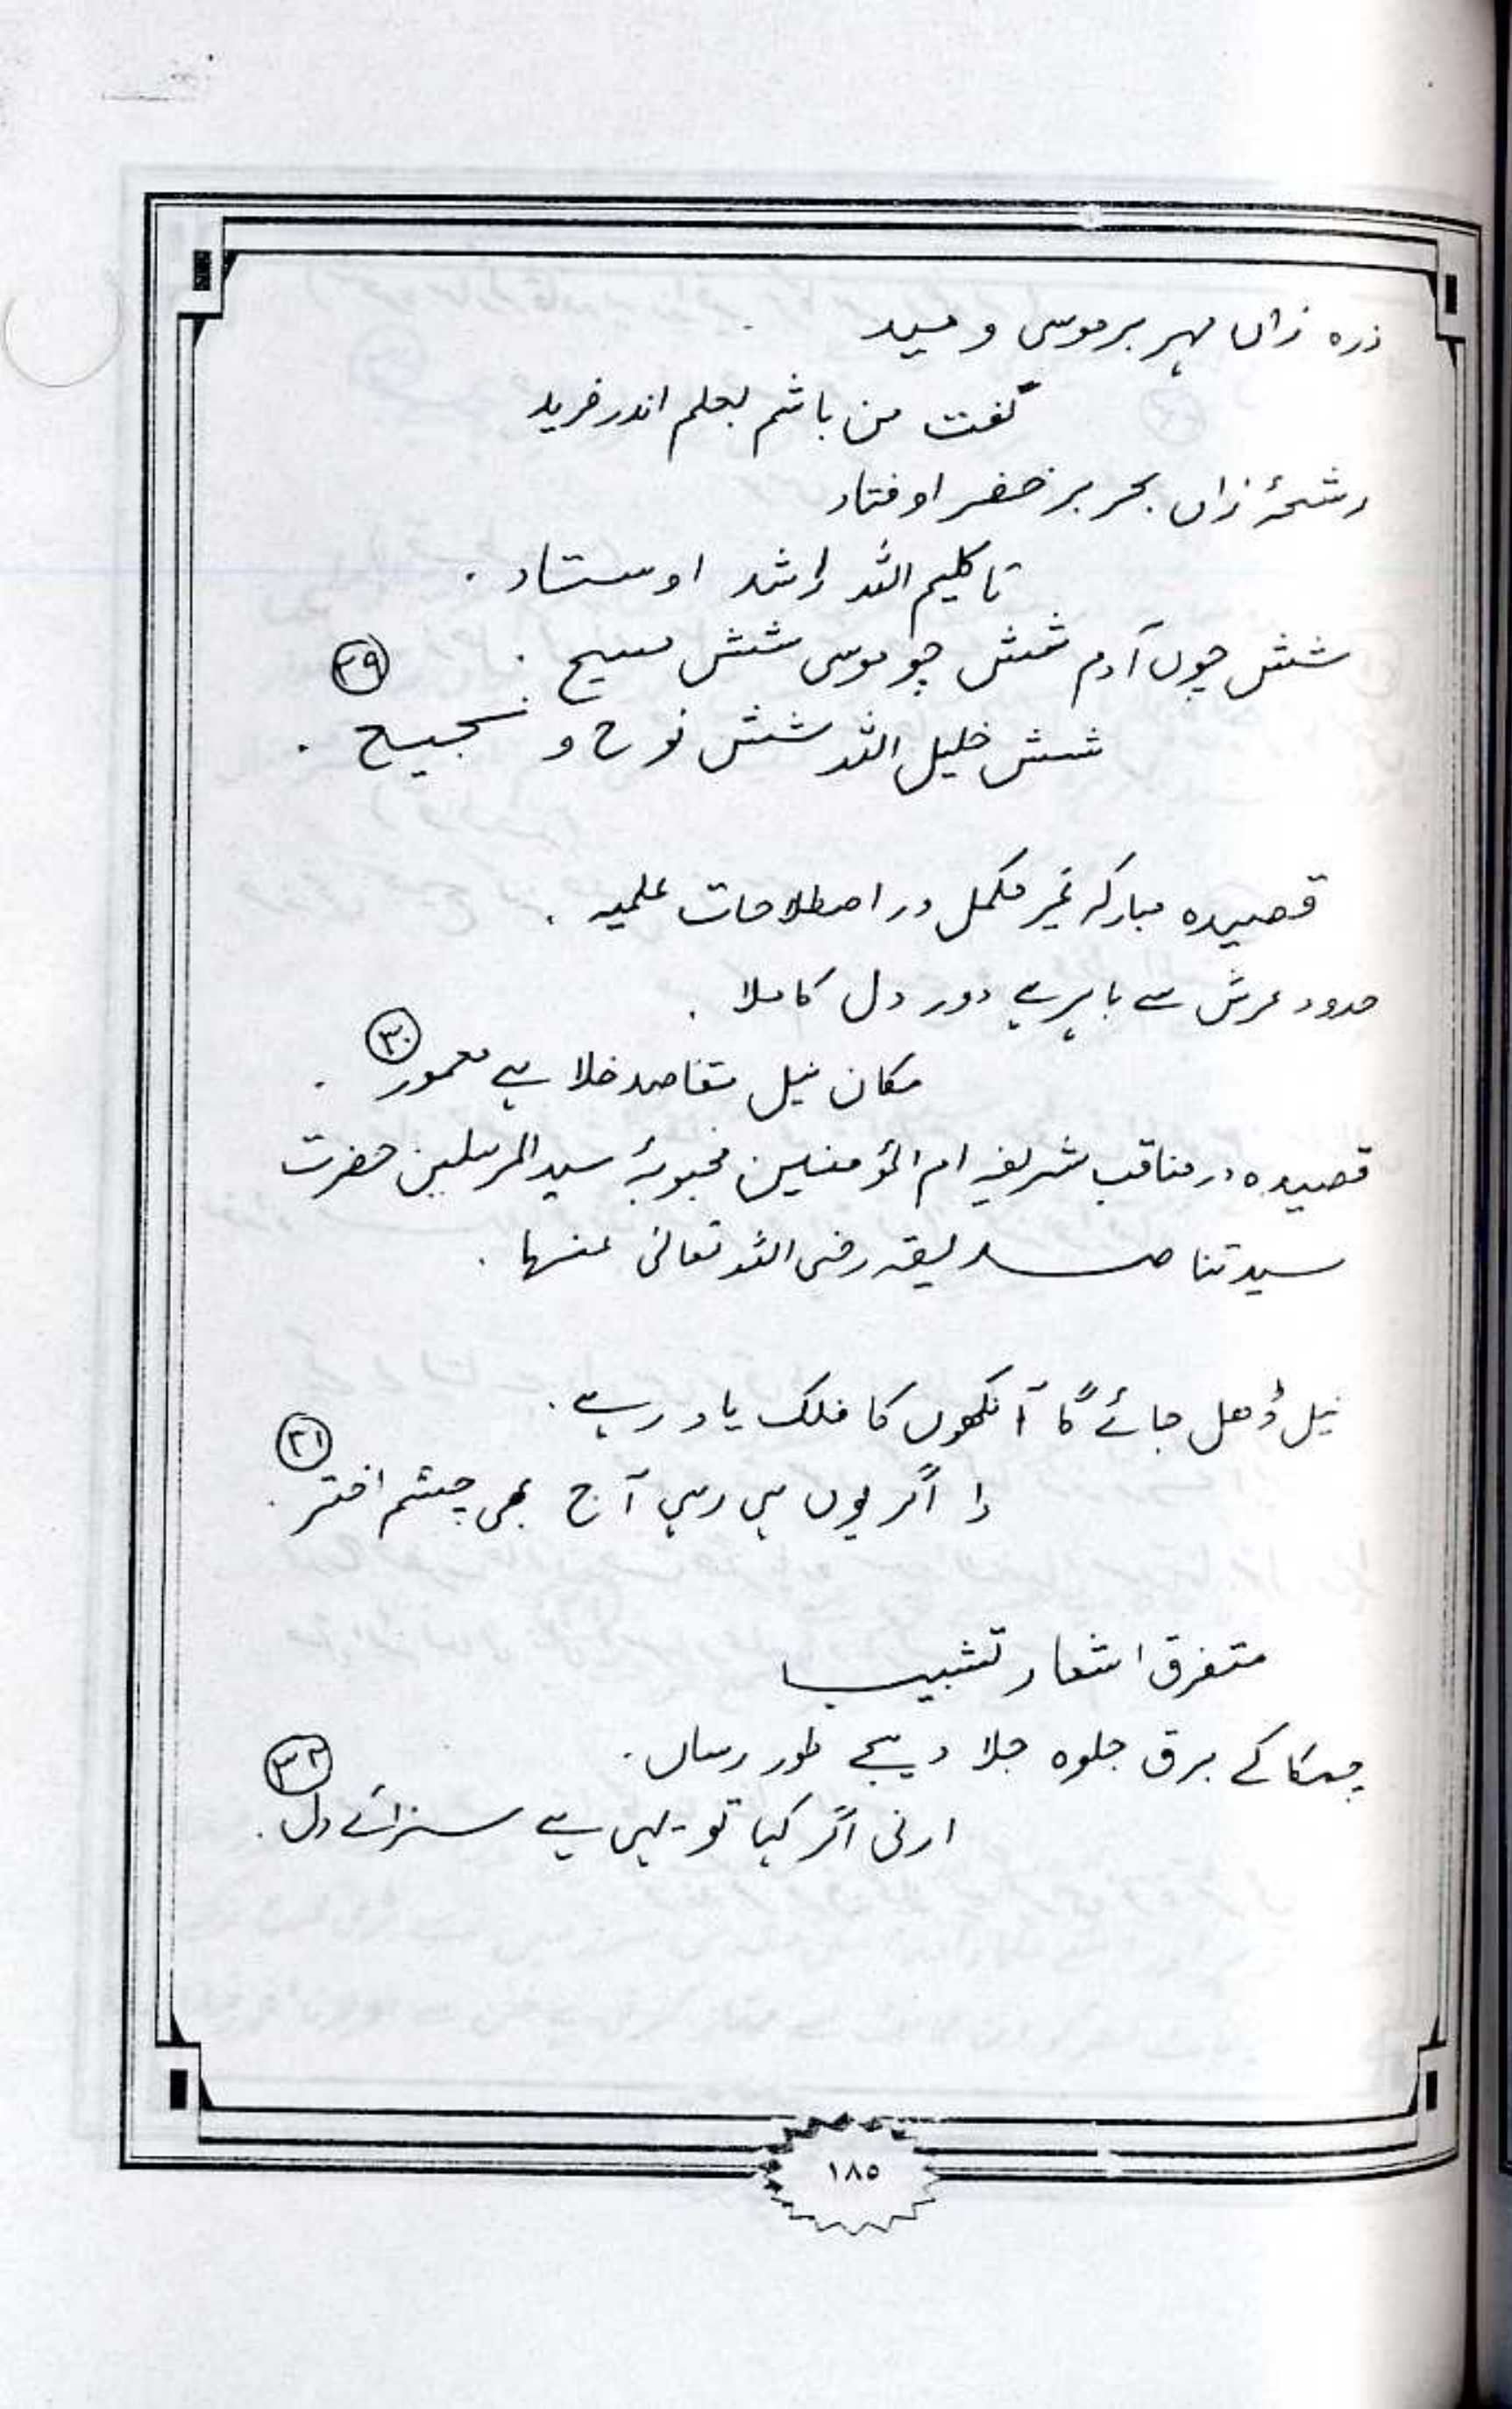 ذرہ زاں مہر بر موسی دمید
گفت من باشم بعلم اندر فرید
رشحۂ زاں بحر بر خضر اوفتاد
تا کلیم اللہ را شد اوستاد .
شش چوں آدم شش چو موسی شش مسیح . ۲۹
شش خلیل اللہ شش نوح و نجیح .
قصیدہ مبارکہ غیر مکمل در اصطلاحات علمیہ .
حدود عرش سے باہر ہے دور دل کاملا .
مکان نیل مقاصد خلا ہے معمور . ۳۰
قصیدہ در مناقب شریفہ ام المؤمنین محبوبۂ سید المرسلین حضرت
سیدتنا صدیقہ رضی اللہ تعالیٰ عنہا .
نیل ڈھل جائے گا آنکھوں کا فلک یاد رہے . ۳۱
را اگر یوں ہی رہی آج بھی چشم اختر .
متفرق اشعار تشبیب
چمکا کے برق جلوہ جلا دیجے طور رساں . ۳۲
ارنی اگر کہا تو یہی ہے سزائے دل .
۱۸۵